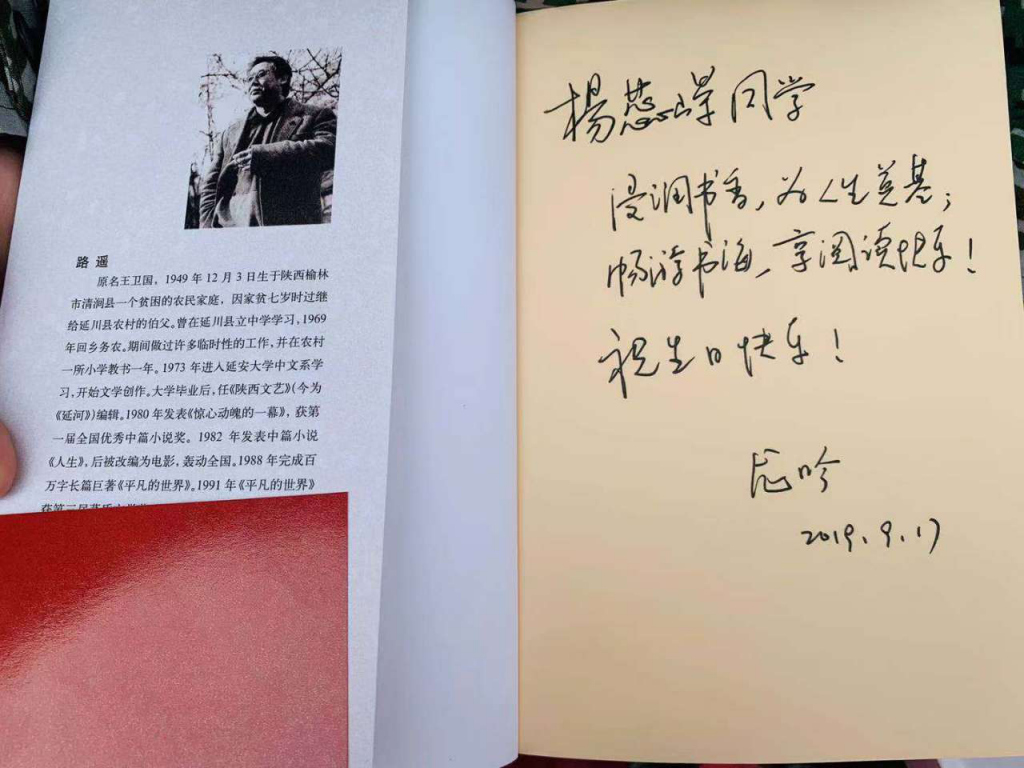 路 遥
原名王卫国，1949 年 12 月 3 日生于陕西榆林
市清涧县一个贫困的农民家庭，因家贫七岁时过继
给延川县农村的伯父。曾在延川县立中学学习，1969
年回乡务农。期间做过许多临时性的工作，并在农村
一所小学教书一年。1973 年进入延安大学中文系学
习，开始文学创作。大学毕业后，任《陕西文艺》（今为
《延河》）编辑。1980 年发表《惊心动魄的一幕》，获第
一届全国优秀中篇小说奖。1982 年发表中篇小说
《人生》，后被改编为电影，轰动全国。1988 年完成百
万字长篇巨著《平凡的世界》。1991 年《平凡的世界》
楊蕊嶸同学
浸润书香，为人生奠基；
畅游书海，享阅读快乐！
祝生日快乐！
龙吟
2019.9.17